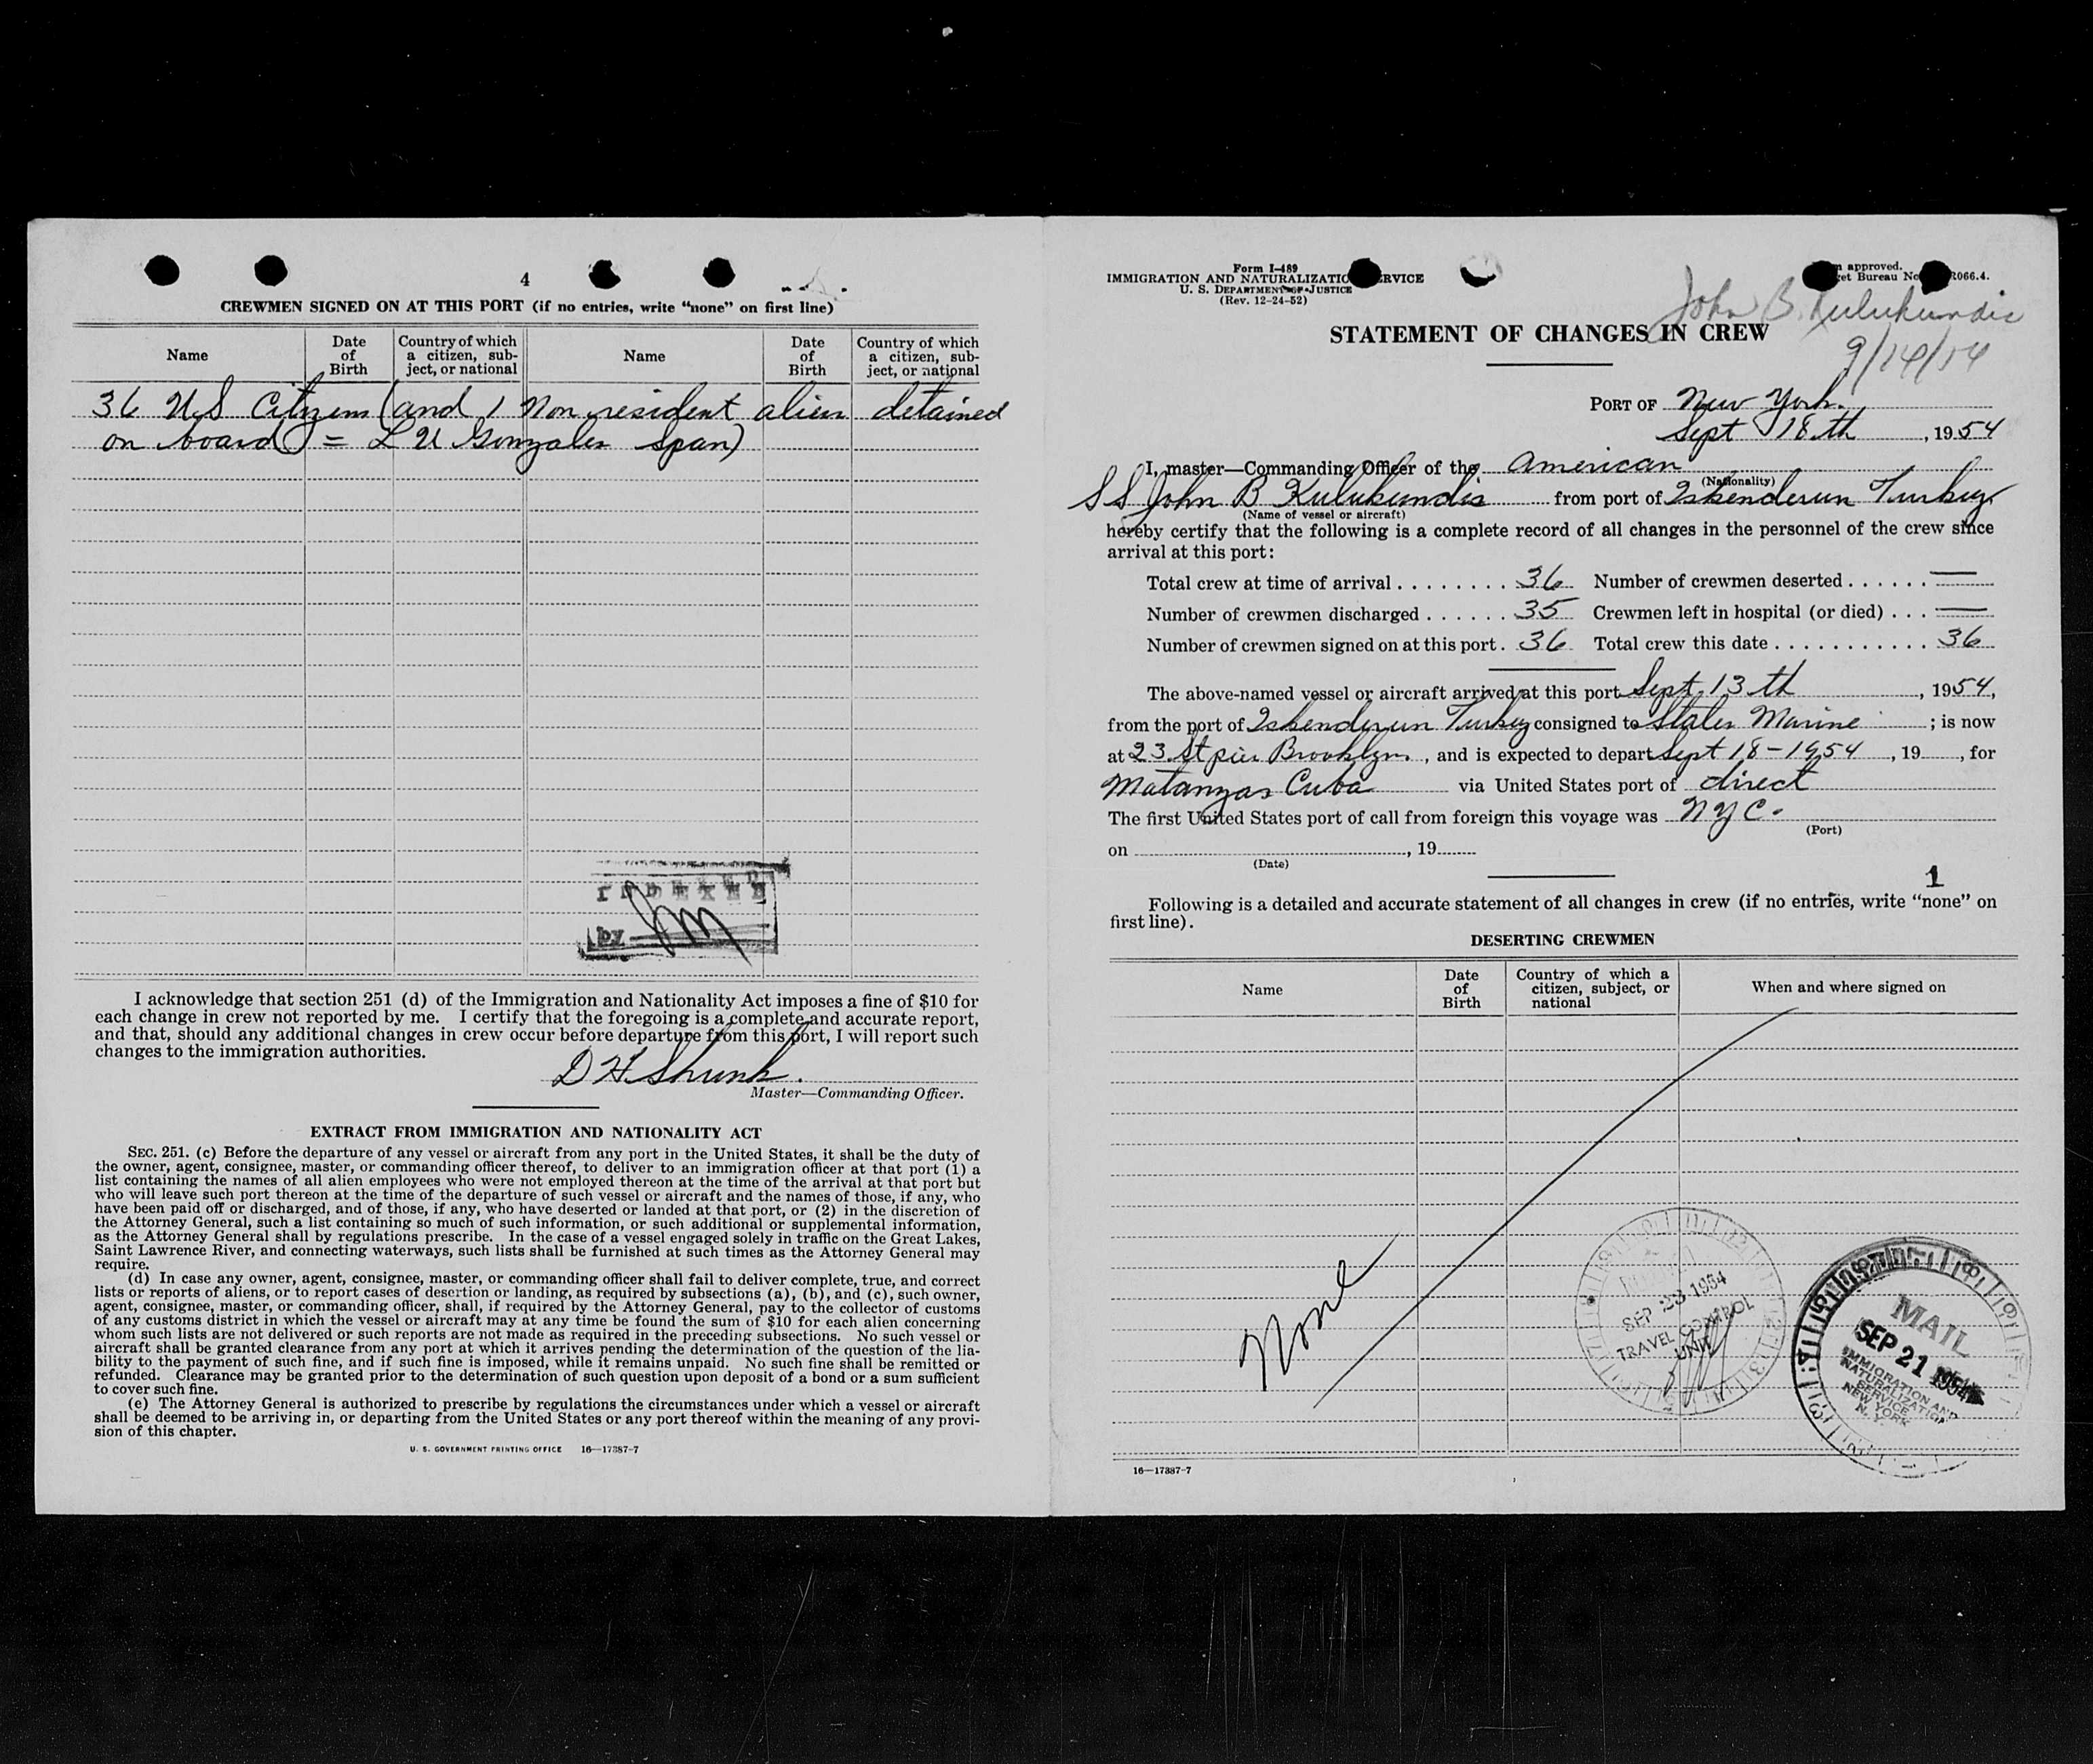 4
CREWMEN SIGNED ON AT THIS PORT (if no entries, write "none" on first line)
Name Date of Birth Country of which a citizen, subject, or national Name Date of Birth Country of which a citizen, subject, or national
36 US Citizens (and 1 Non resident alien detained
on board) = L U Gonzales Span)
INDEXED
by
I acknowledge that section 251 (d) of the Immigration and Nationality Act imposes a fine of $10 for
each change in crew not reported by me. I certify that the foregoing is a complete and accurate report,
and that, should any additional changes in crew occur before departure from this port, I will report such
changes to the immigration authorities.
D H Shunk.
Master—Commanding Officer.
EXTRACT FROM IMMIGRATION AND NATIONALITY ACT
SEC. 251. (c) Before the departure of any vessel or aircraft from any port in the United States, it shall be the duty of
the owner, agent, consignee, master, or commanding officer thereof, to deliver to an immigration officer at that port (1) a
list containing the names of all alien employees who were not employed thereon at the time of the arrival at that port but
who will leave such port thereon at the time of the departure of such vessel or aircraft and the names of those, if any, who
have been paid off or discharged, and of those, if any, who have deserted or landed at that port, or (2) in the discretion of
the Attorney General, such a list containing so much of such information, or such additional or supplemental information,
as the Attorney General shall by regulations prescribe. In the case of a vessel engaged solely in traffic on the Great Lakes,
Saint Lawrence River, and connecting waterways, such lists shall be furnished at such times as the Attorney General may
require.
(d) In case any owner, agent, consignee, master, or commanding officer shall fail to deliver complete, true, and correct
lists or reports of aliens, or to report cases of desertion or landing, as required by subsections (a), (b), and (c), such owner,
agent, consignee, master, or commanding officer, shall, if required by the Attorney General, pay to the collector of customs
of any customs district in which the vessel or aircraft may at any time be found the sum of $10 for each alien concerning
whom such lists are not delivered or such reports are not made as required in the preceding subsections. No such vessel or
aircraft shall be granted clearance from any port at which it arrives pending the determination of the question of the lia-
bility to the payment of such fine, and if such fine is imposed, while it remains unpaid. No such fine shall be remitted or
refunded. Clearance may be granted prior to the determination of such question upon deposit of a bond or a sum sufficient
to cover such fine.
(e) The Attorney General is authorized to prescribe by regulations the circumstances under which a vessel or aircraft
shall be deemed to be arriving in, or departing from the United States or any port thereof within the meaning of any provi-
sion of this chapter.
U. S. GOVERNMENT PRINTING OFFICE 16—17387-7
Form I-489
IMMIGRATION AND NATURALIZATIO ERVICE
U. S. DEPARTMENT OF JUSTICE
(Rev. 12-24-52)
m approved.
et Bureau No R066.4.
John B. Kulukundis
9/14/54
STATEMENT OF CHANGES IN CREW
PORT OF New York.
Sept 18th, 1954
I, master—Commanding Officer of the American
(Nationality)
SS John B Kulukundis from port of Iskenderun Turkey
(Name of vessel or aircraft)
hereby certify that the following is a complete record of all changes in the personnel of the crew since
arrival at this port:
Total crew at time of arrival . . . . . . . . 36 Number of crewmen deserted . . . . . . —
Number of crewmen discharged . . . . . . 35 Crewmen left in hospital (or died) . . . —
Number of crewmen signed on at this port . 36 Total crew this date . . . . . . . . . . . 36
The above-named vessel or aircraft arrived at this port Sept. 13th, 1954,
from the port of Iskenderun Turkey consigned to States Marine ; is now
at 23 St pier Brooklyn. , and is expected to depart Sept 18-1954 , 19 , for
Matanzas Cuba via United States port of direct
The first United States port of call from foreign this voyage was NYC.
(Port)
on , 19
(Date)
1
Following is a detailed and accurate statement of all changes in crew (if no entries, write "none" on
first line).
DESERTING CREWMEN
Name Date of Birth Country of which a citizen, subject, or national When and where signed on
None
SEP 23 1954
TRAVEL CONTROL
UNIT
MAIL
SEP 21 1954
IMMIGRATION AND
NATURALIZATION
SERVICE
NEW YORK
N. Y.
16—17387-7